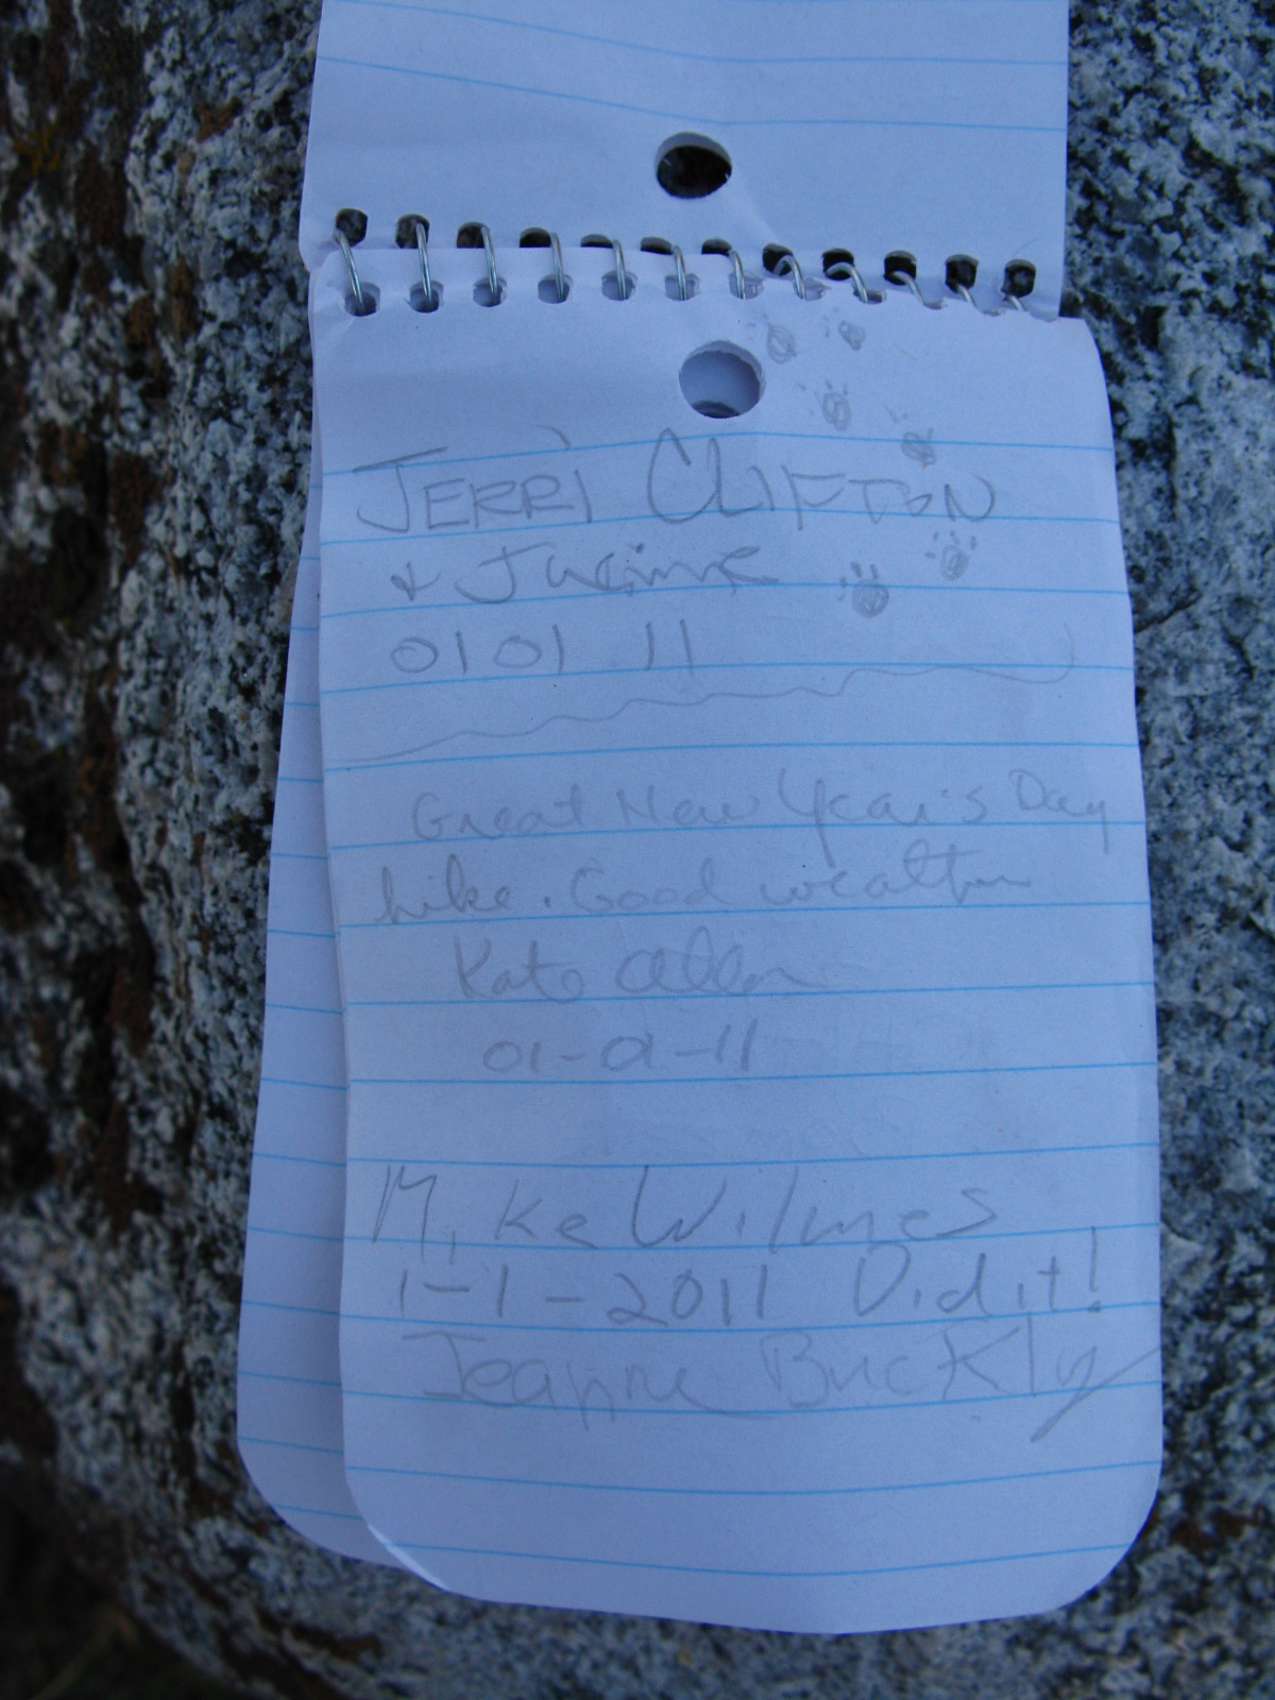 JERRI CLIFTON
&
01 01 11
Great New Year's Day
hike. Good weather
Kate Allen
01-01-11
Mike Wilmes
1-1-2011 Did it!
Jeanne Buckly